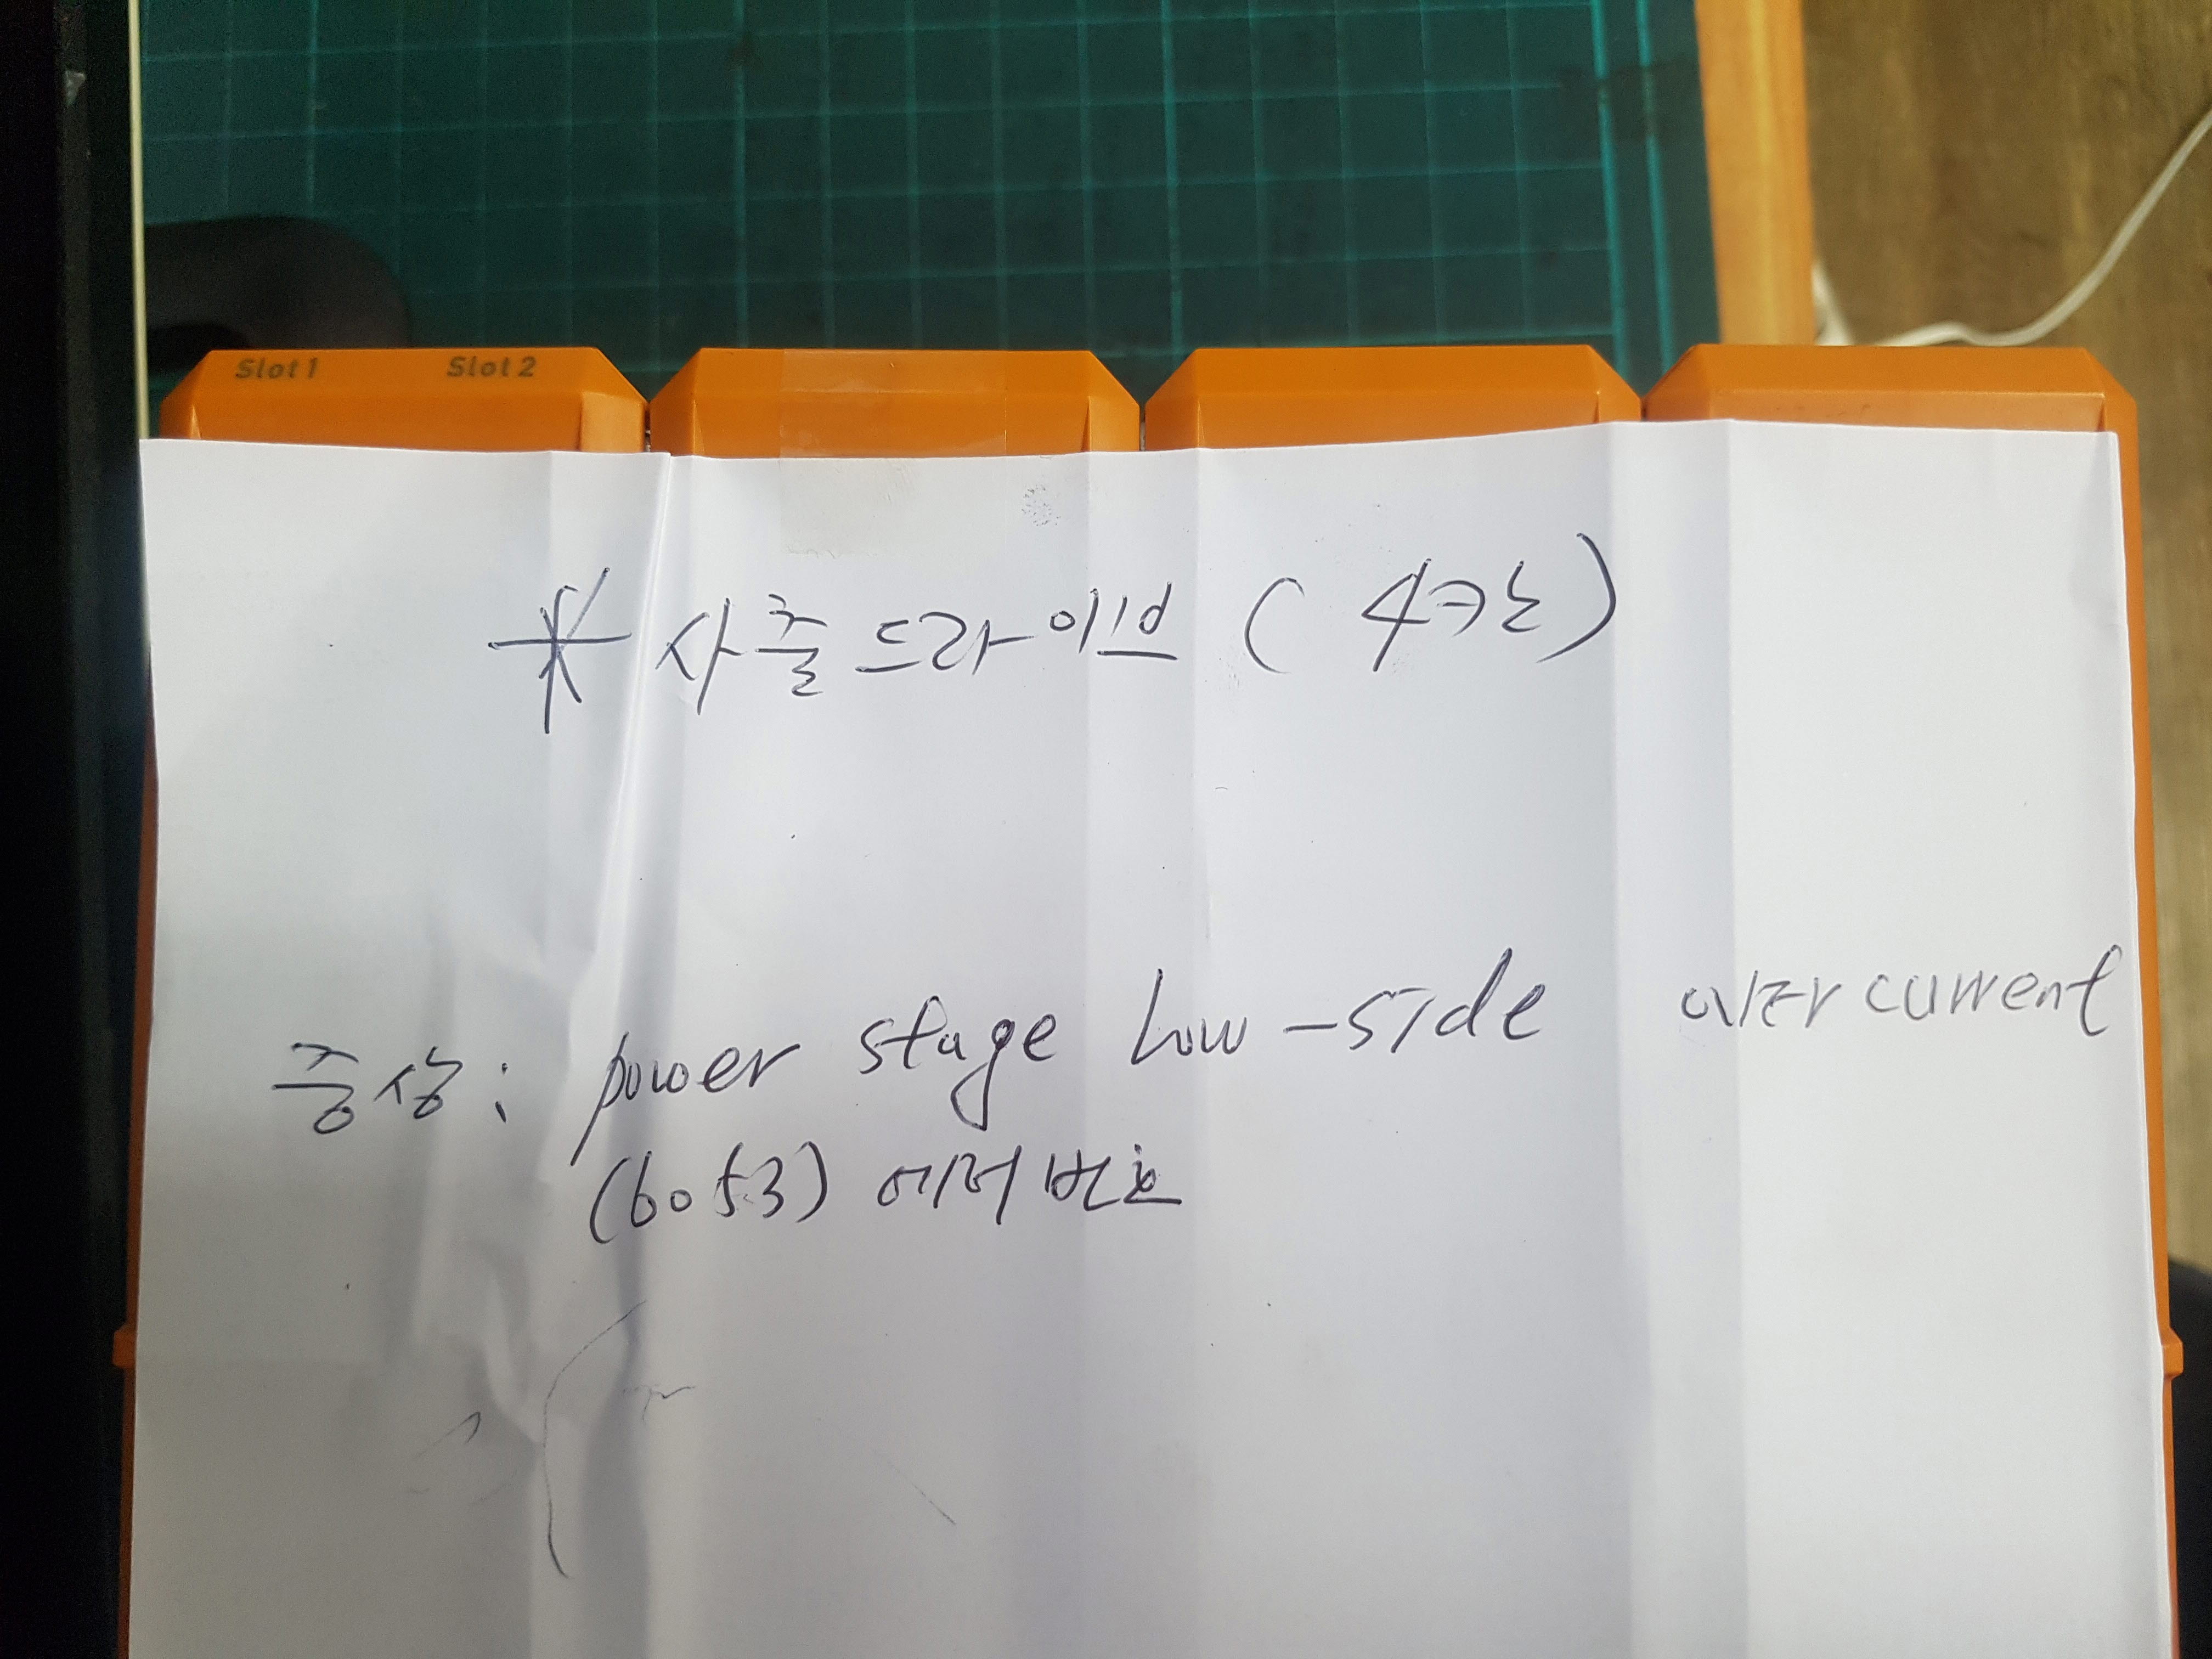 Slot1 Slot2
* 사출드라이브
증상: power stage Low-side over current
(6053) 에러 번호